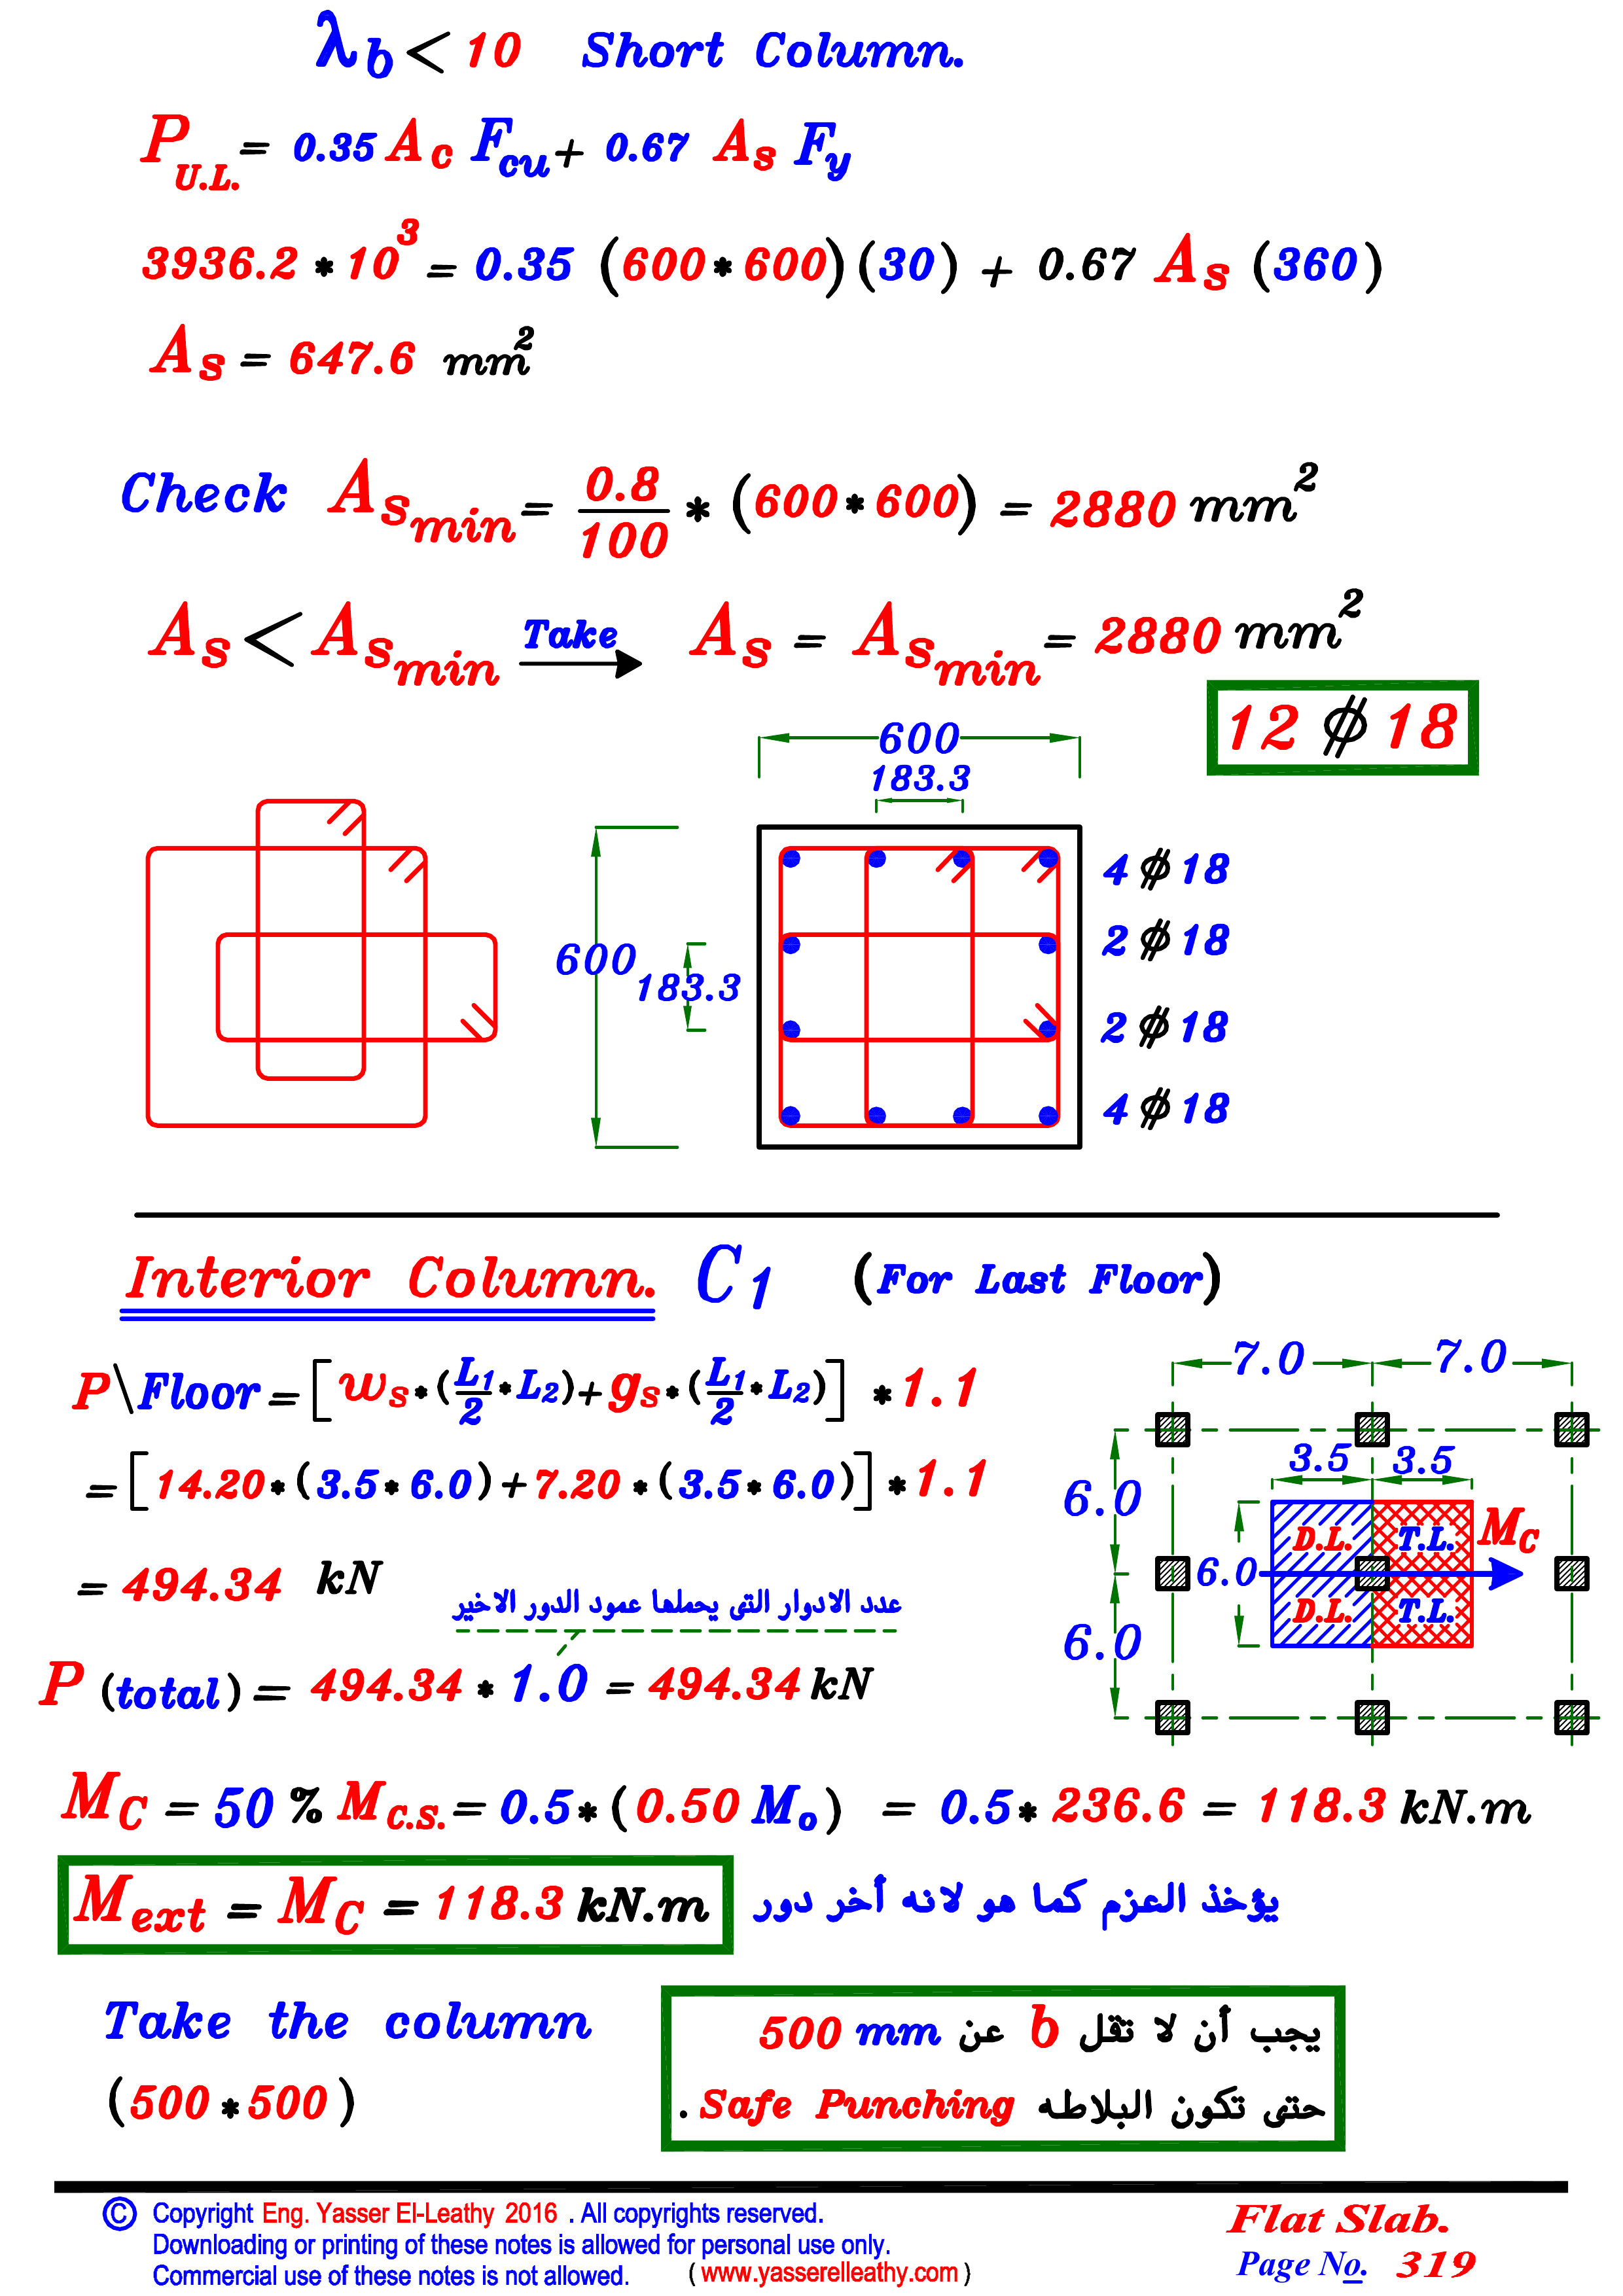 λb < 10 Short Column.
P U.L. = 0.35 Ac Fcu + 0.67 As Fy
3936.2 * 10³ = 0.35 (600 * 600)(30) + 0.67 As (360)
As = 647.6 mm²
Check Asmin = 0.8/100 * (600 * 600) = 2880 mm²
As < Asmin Take As = Asmin = 2880 mm²
12 ϕ 18
600
183.3
600
183.3
4 ϕ 18
2 ϕ 18
2 ϕ 18
4 ϕ 18
Interior Column. C1 (For Last Floor)
P\Floor = [ws * (L1/2 * L2) + gs * (L1/2 * L2)] * 1.1
= [14.20 * (3.5 * 6.0) + 7.20 * (3.5 * 6.0)] * 1.1
= 494.34 kN
عدد الادوار التى يحملها عمود الدور الاخير
P (total) = 494.34 * 1.0 = 494.34 kN
7.0 7.0
3.5 3.5
6.0
D.L. T.L. Mc
6.0
D.L. T.L.
6.0
Mc = 50 % Mc.s. = 0.5 * (0.50 Mo) = 0.5 * 236.6 = 118.3 kN.m
Mext = Mc = 118.3 kN.m يؤخذ العزم كما هو لانه أخر دور
Take the column
(500 * 500)
يجب أن لا تقل b عن 500 mm
حتى تكون البلاطه Safe Punching .
© Copyright Eng. Yasser El-Leathy 2016 . All copyrights reserved.
Downloading or printing of these notes is allowed for personal use only.
Commercial use of these notes is not allowed. ( www.yasserelleathy.com )
Flat Slab.
Page No. 319